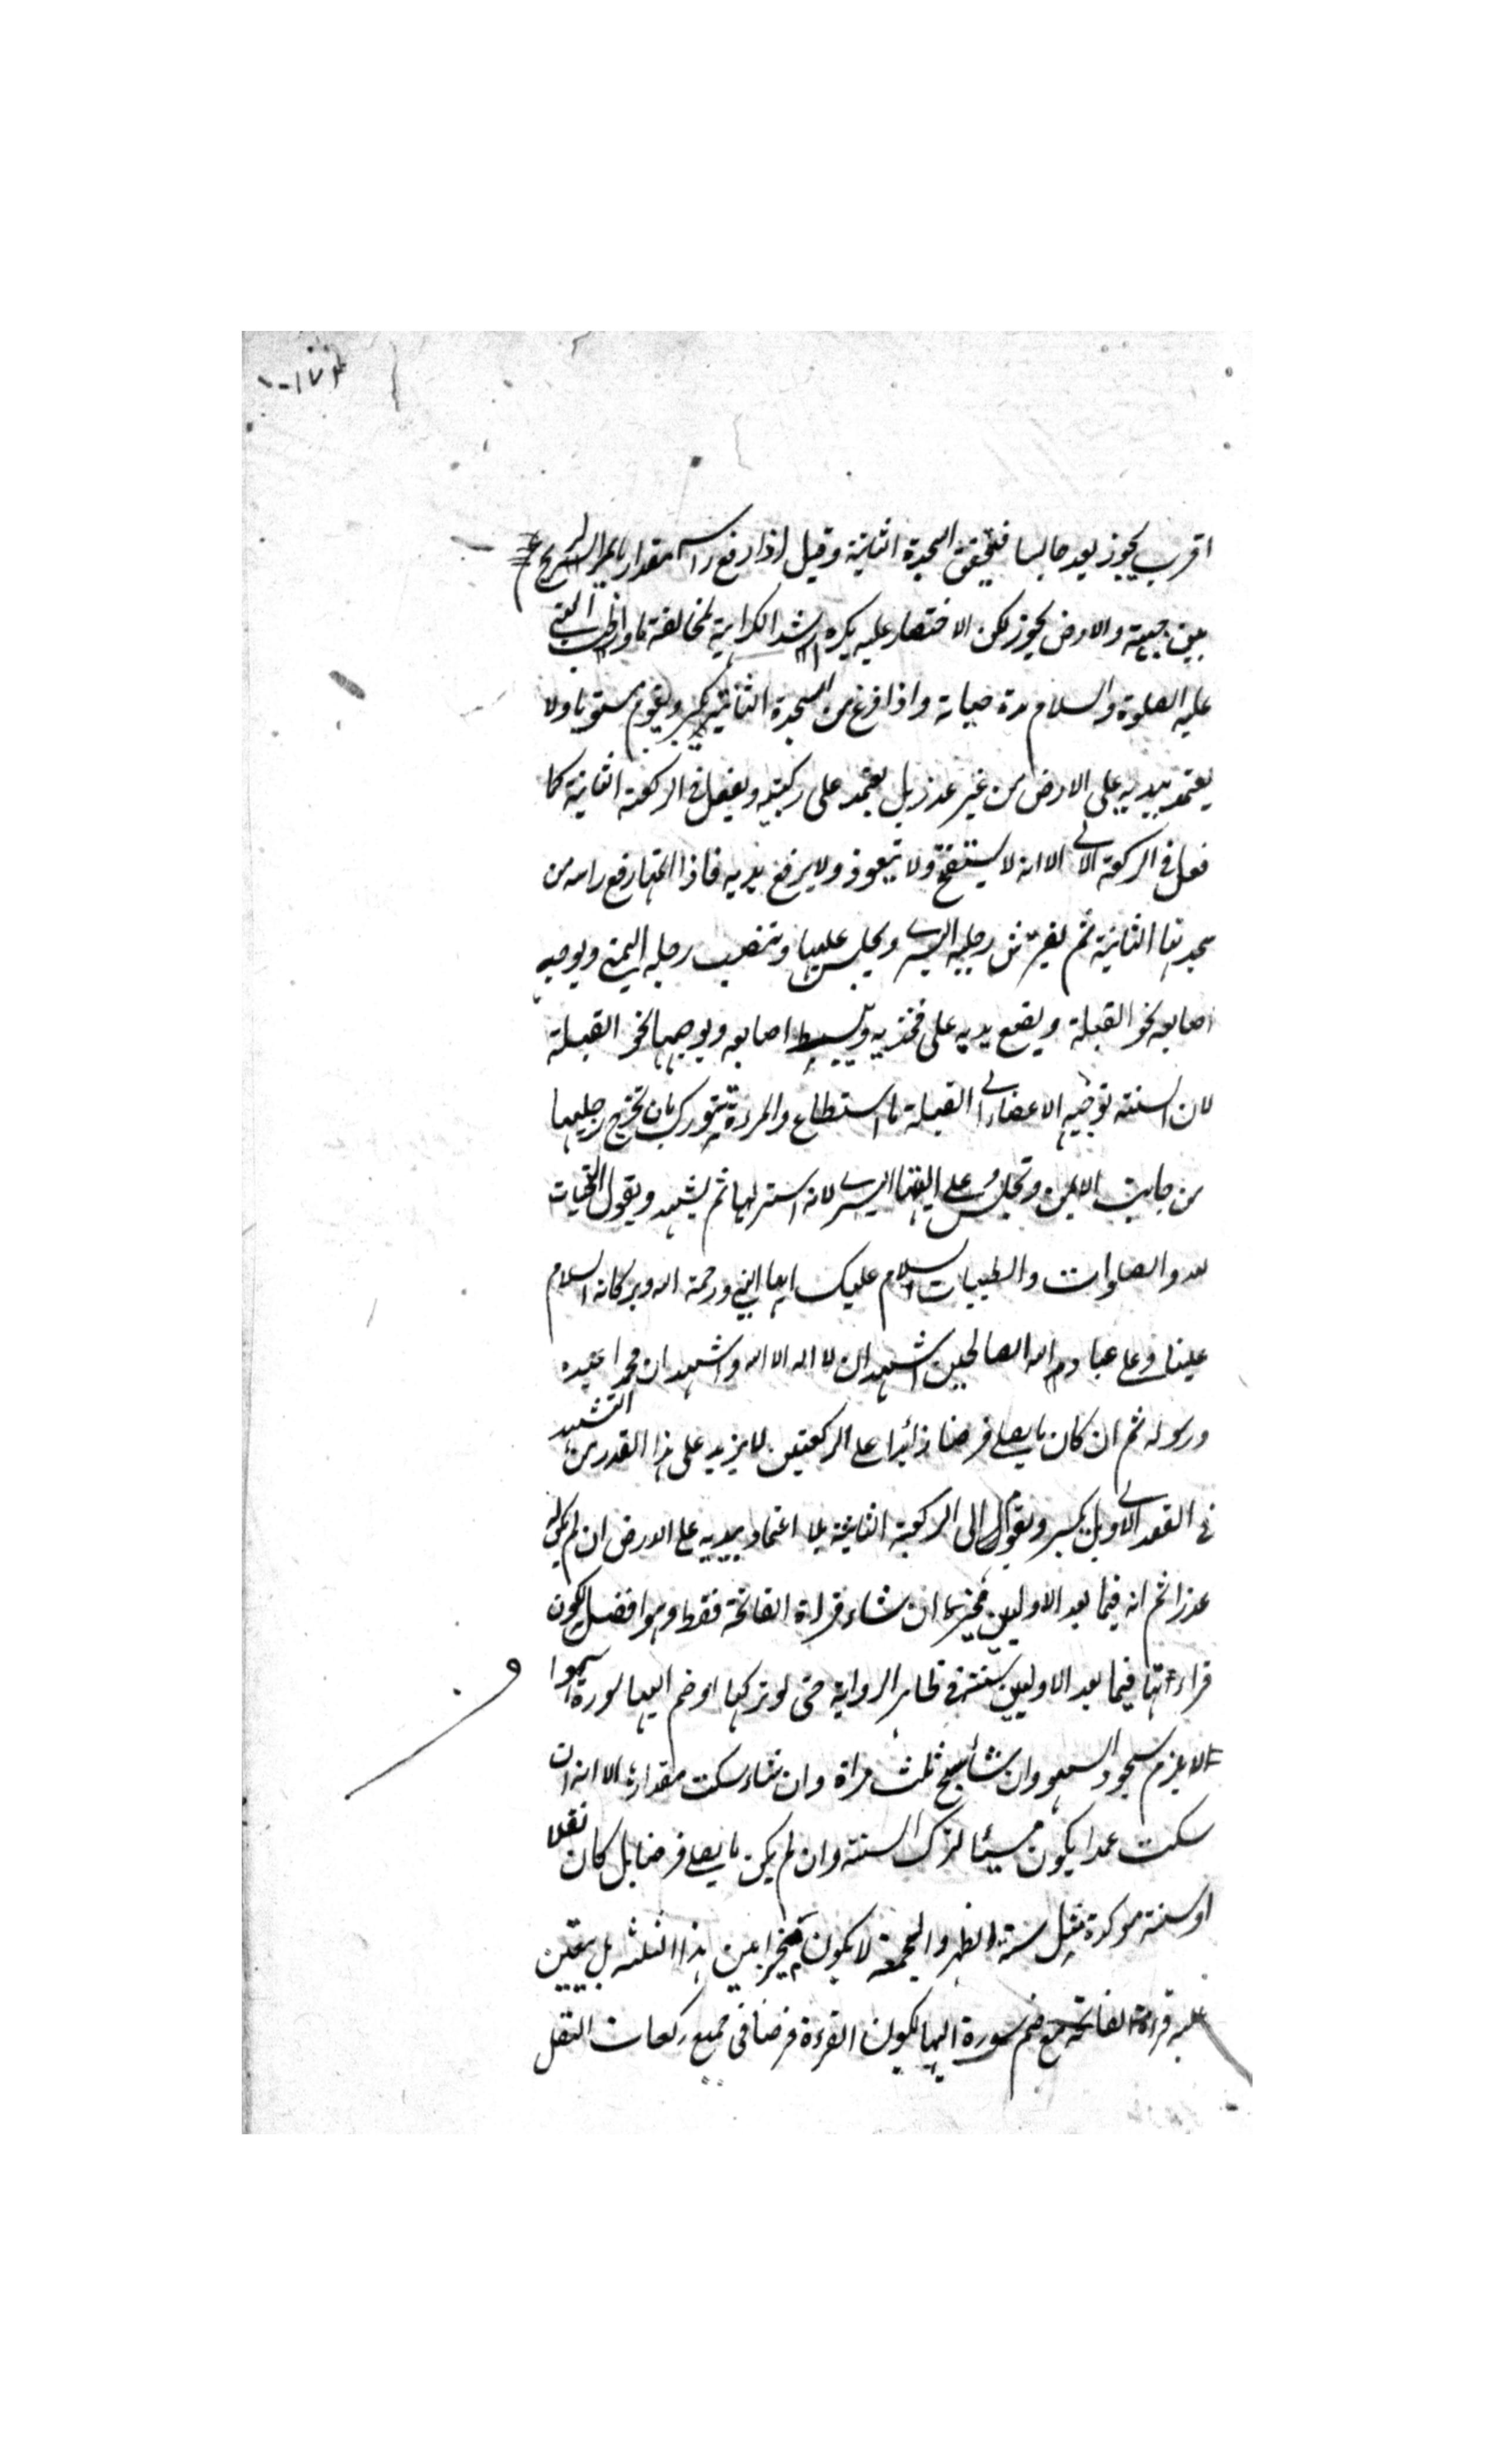 اقرب يجوز يعد جالسا فيتحقق السجدة الثانية وقيل اذا رفع راسه مقدار ما يمر الريح
بين جبهته والارض يجوز لكن الاختصار عليه يكره اشد الكراهية لمخالفة ما واظب النبي
عليه الصلوة والسلام مدة حياته واذا فرغ من السجدة الثانية يكبر ويقوم مستويا ولا
يعتمد بيديه على الارض من غير عذر بل يعتمد على ركبتيه ويفعل في الركعة الثانية كما
فعل في الركعة الاولى الا انه لا يستفتح ولا يتعوذ ولا يرفع يديه فاذا اتمها رفع راسه من
سجدتها الثانية ثم يفترش رجليه اليسرى ويجلس عليها وينصب رجله اليمنى ويوجه
اصابعه نحو القبلة ويضع يديه على فخذيه ويبسط اصابعه ويوجهها نحو القبلة
لان السنة توجيه الاعضاء الى القبلة ما استطاع والمرءة تتورك بان تخرج رجليها
من جانب الايمن وتجلس على اليتها اليسرى لانه استر لها ثم يتشهد ويقول التحيات
لله والصلوات والطيبات السلام عليك ايها النبي ورحمة الله وبركاته السلام
علينا وعلى عباد الله الصالحين اشهد ان لا اله الا الله واشهد ان محمدا عبده
ورسوله ثم ان كان ما يصلي فرضا زائدا على الركعتين لا يزيد على هذا القدر من التشهد
في القعد الاولى بل يكبر ويقوم الى الركعة الثالثة بلا اعتماد بيديه على الارض ان لم يكن له
عذرا ثم انه فيما بعد الاوليين مخير ان شاء قراة الفاتحة فقط وهو افضل لكون
قراءتها فيما بعد الاوليين سنة في ظاهر الرواية حتى لو تركها او ضم اليها سورة سهوا
لا يلزم سجود السهو وان شاء سبح ثلث مراة وان شاء سكت مقدارها الا انه ان
سكت عمدا يكون مسيئا لترك السنة وان لم يكن ما يصلي فرضا بل كان نفلا
او سنة موكدة مثل سنة الظهر والجمعة لا يكون مخيرا بين هذا الثلثه بل يتعين
عليه قراءة الفاتحة مع ضم سورة اليها لكون القرءة فرضا في جميع ركعات النفل